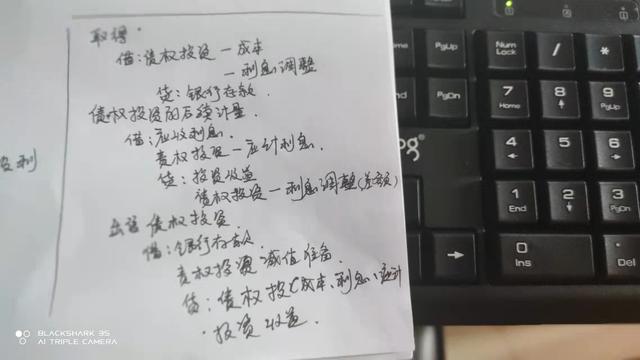 取得.
借:债权投资—成本
—利息调整
贷:银行存款.
债权投资的后续计量
借:应收利息.
责权投资—应计利息.
贷:投资收益
债权投资—利息调整(差额)
出售债权投资.
借:银行存款.
责权投资减值准备.
贷:债权投(成本、利息、应计
·投资收益.
及利
Num Lock
/
*
PgUp
PgUp
PgDn
7
Home
8
9
PgUp
4
5
6
1
End
2
3
PgDn
0
Ins
.
Del
og
BLACKSHARK 3S
AI TRIPLE CAMERA